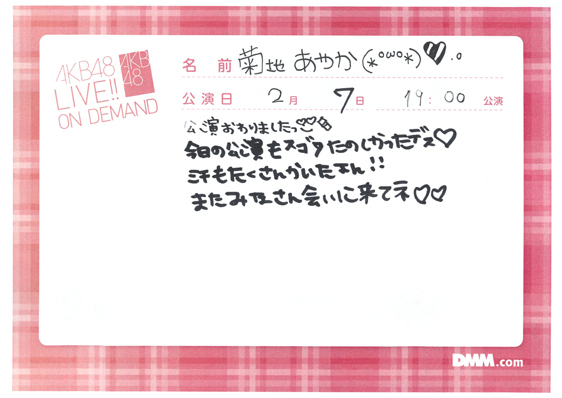 AKB48
LIVE!!
ON DEMAND
AKB
48
名前 菊地 あやか(*°ω°*)♥..
公演日 2月 7日 19:00 公演
公演おわりましたっ♡♡
今日の公演もスゴクたのしかったデス♡
汗もたくさんかいたょん!!
またみなさん会いに来てネ♡♡
DMM.com